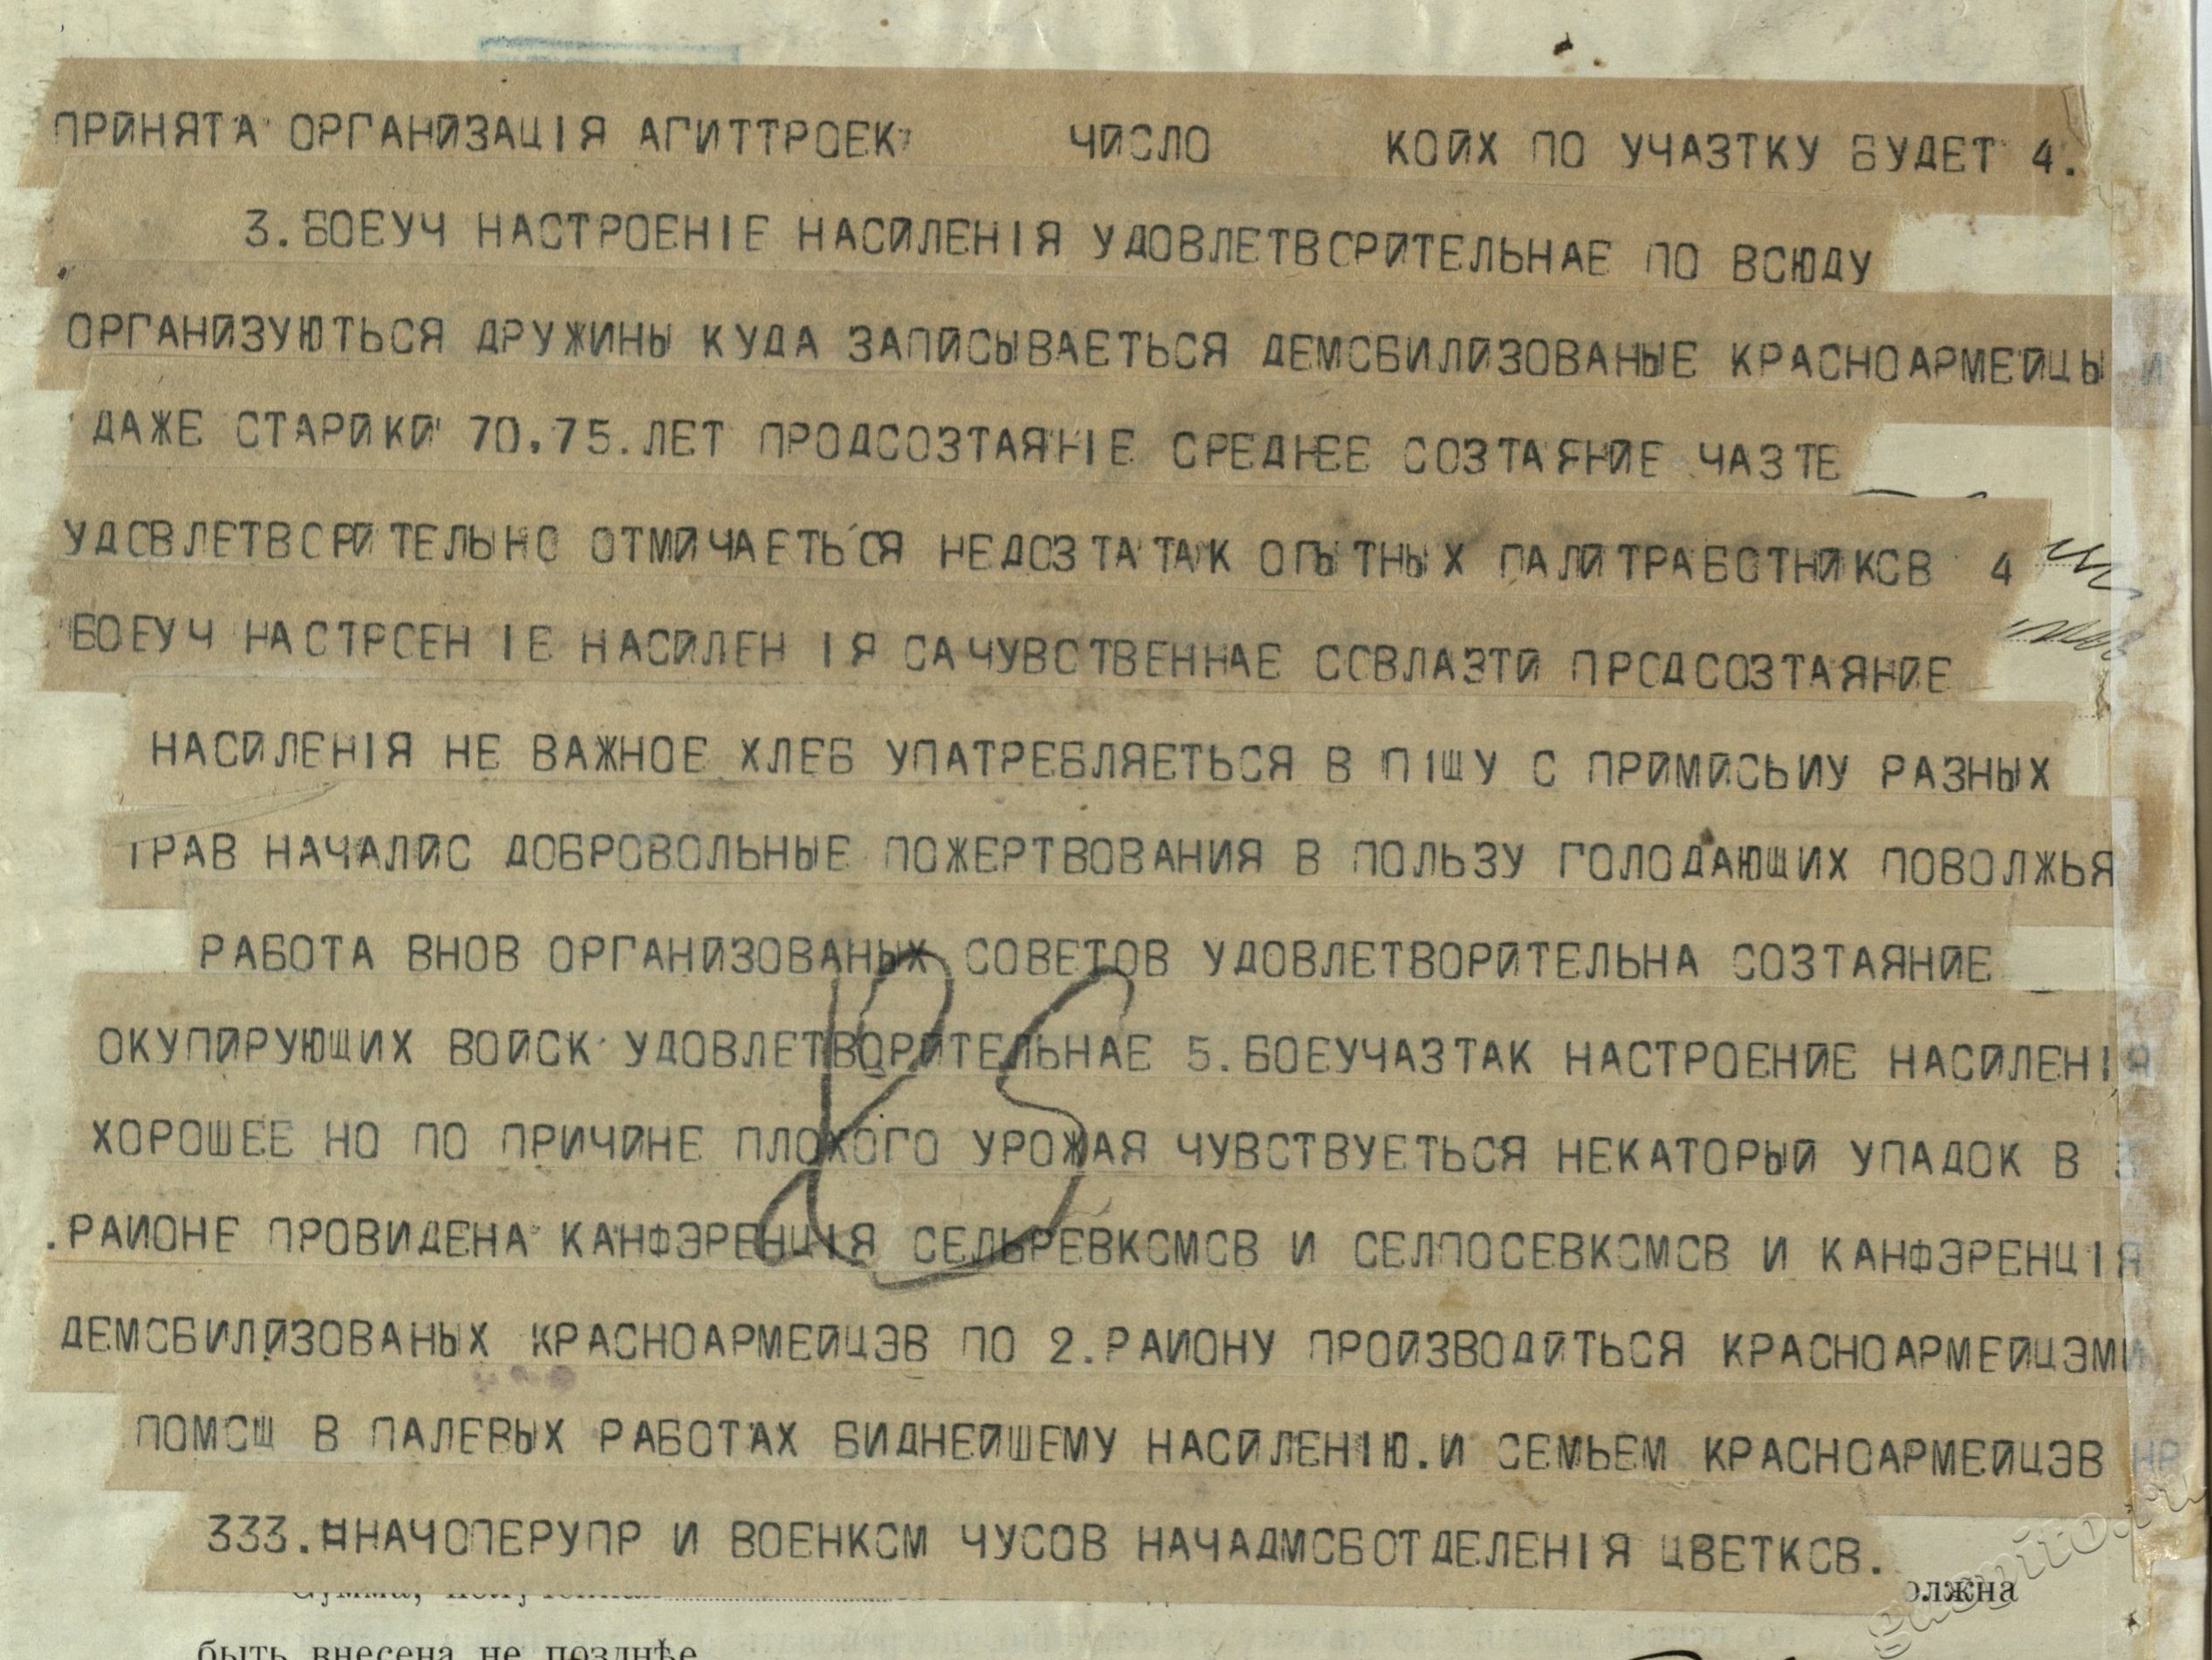 ПРИНЯТА ОРГАНИЗАЦІЯ АГИТТРОЕК ЧИСЛО КОИХ ПО УЧАЗТКУ БУДЕТ 4.
3.БОЕУЧ НАСТРОЕНІЕ НАСИЛЕНІЯ УДОВЛЕТВСРИТЕЛЬНАЕ ПО ВСЮДУ
ОРГАНИЗУЮТЬСЯ ДРУЖИНЫ КУДА ЗАПИСЫВАЕТЬСЯ ДЕМСБИЛИЗОВАНЫЕ КРАСНОАРМЕЙЦЫ И
ДАЖЕ СТАРИКИ 70.75.ЛЕТ ПРОДСОЗТАЯНІЕ СРЕДНЕЕ СОЗТАЯНИЕ ЧАЗТЕ
УДСВЛЕТВСРИТЕЛЬНО ОТМИЧАЕТЬСЯ НЕДОЗТАТАК ОПЫТНЫХ ПАЛИТРАБОТНИКСВ 4
БОЕУЧ НАСТРСЕНІЕ НАСИЛЕНІЯ САЧУВСТВЕННАЕ ССВЛАЗТИ ПРСДСОЗТАЯНИЕ
НАСИЛЕНІЯ НЕ ВАЖНОЕ ХЛЕБ УПАТРЕБЛЯЕТЬСЯ В ПІЩУ С ПРИМИСЬИУ РАЗНЫХ
ТРАВ НАЧАЛИС ДОБРОВОЛЬНЫЕ ПОЖЕРТВОВАНИЯ В ПОЛЬЗУ ГОЛОДАЮЩИХ ПОВОЛЖЬЯ
РАБОТА ВНОВ ОРГАНИЗОВАНЫХ СОВЕТОВ УДОВЛЕТВОРИТЕЛЬНА СОЗТАЯНИЕ
ОКУПИРУЮЩИХ ВОЙСК УДОВЛЕТВОРИТЕЛЬНАЕ 5.БОЕУЧАЗТАК НАСТРОЕНИЕ НАСИЛЕНІЯ
ХОРОШЕЕ НО ПО ПРИЧИНЕ ПЛОХОГО УРОЖАЯ ЧУВСТВУЕТЬСЯ НЕКАТОРЫЙ УПАДОК В 3
.РАИОНЕ ПРОВИДЕНА КАНФЭРЕНЦІЯ СЕЛЬРЕВКСМСВ И СЕЛПОСЕВКСМСВ И КАНФЭРЕНЦІЯ
ДЕМСБИЛИЗОВАНЫХ КРАСНОАРМЕЙЦЭВ ПО 2.РАИОНУ ПРОИЗВОДИТЬСЯ КРАСНОАРМЕЙЦЭМИ
ПОМСЩ В ПАЛЕВЫХ РАБОТАХ БИДНЕЙШЕМУ НАСИЛЕНІЮ.И СЕМЬЕМ КРАСНОАРМЕЙЦЭВ НР
333.¤НАЧОПЕРУПР И ВОЕНКСМ ЧУСОВ НАЧАДМСБОТДЕЛЕНІЯ ЦВЕТКСВ.
олжна
быть внесена не позднѣе
gasnito.ru